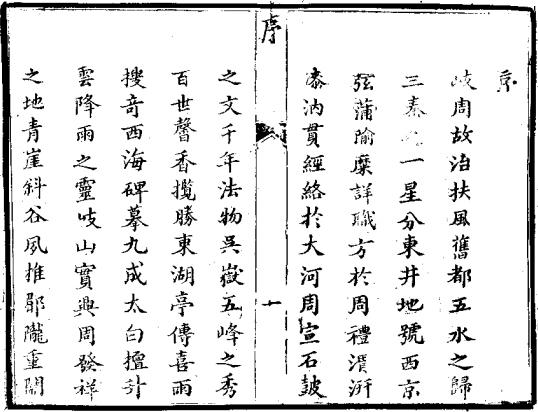 京
岐周故治扶風舊都五水之歸
三秦之一星分東井地號西京
弦蒲隃糜詳職方於周禮渭汧
漆汭貫經絡於大河周宣石鼓
序
十
之文千年法物吳嶽五峰之秀
百世馨香攬勝東湖亭傳喜雨
搜奇西海碑摹九成太白擅升
雲降雨之靈岐山實興周發祥
之地青崖斜谷夙推郿隴重關